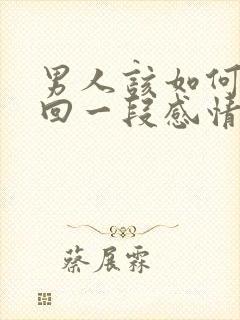 男人該如何
回一段感情
蔡展霖